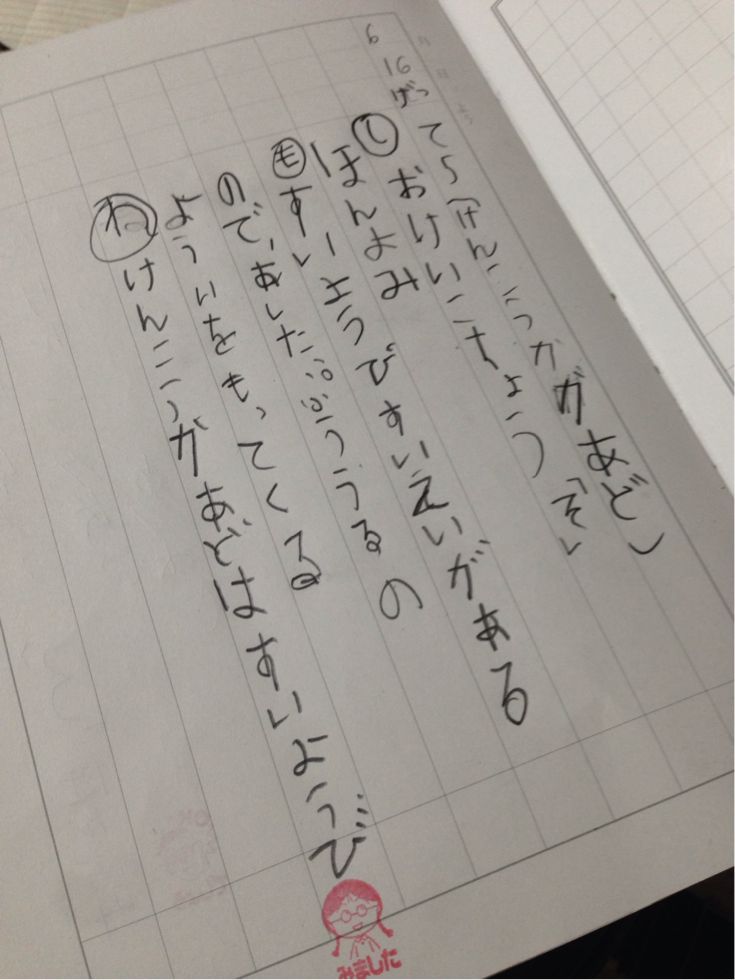 6 16 げつ
てら(けんこうかがあど)
し おけいこちょう「そ」
ほんよみ
も すいようびすいえいがある
ので、あしたぷうるの
よういをもってくる
ね けんこうかあどはすいようび
みました